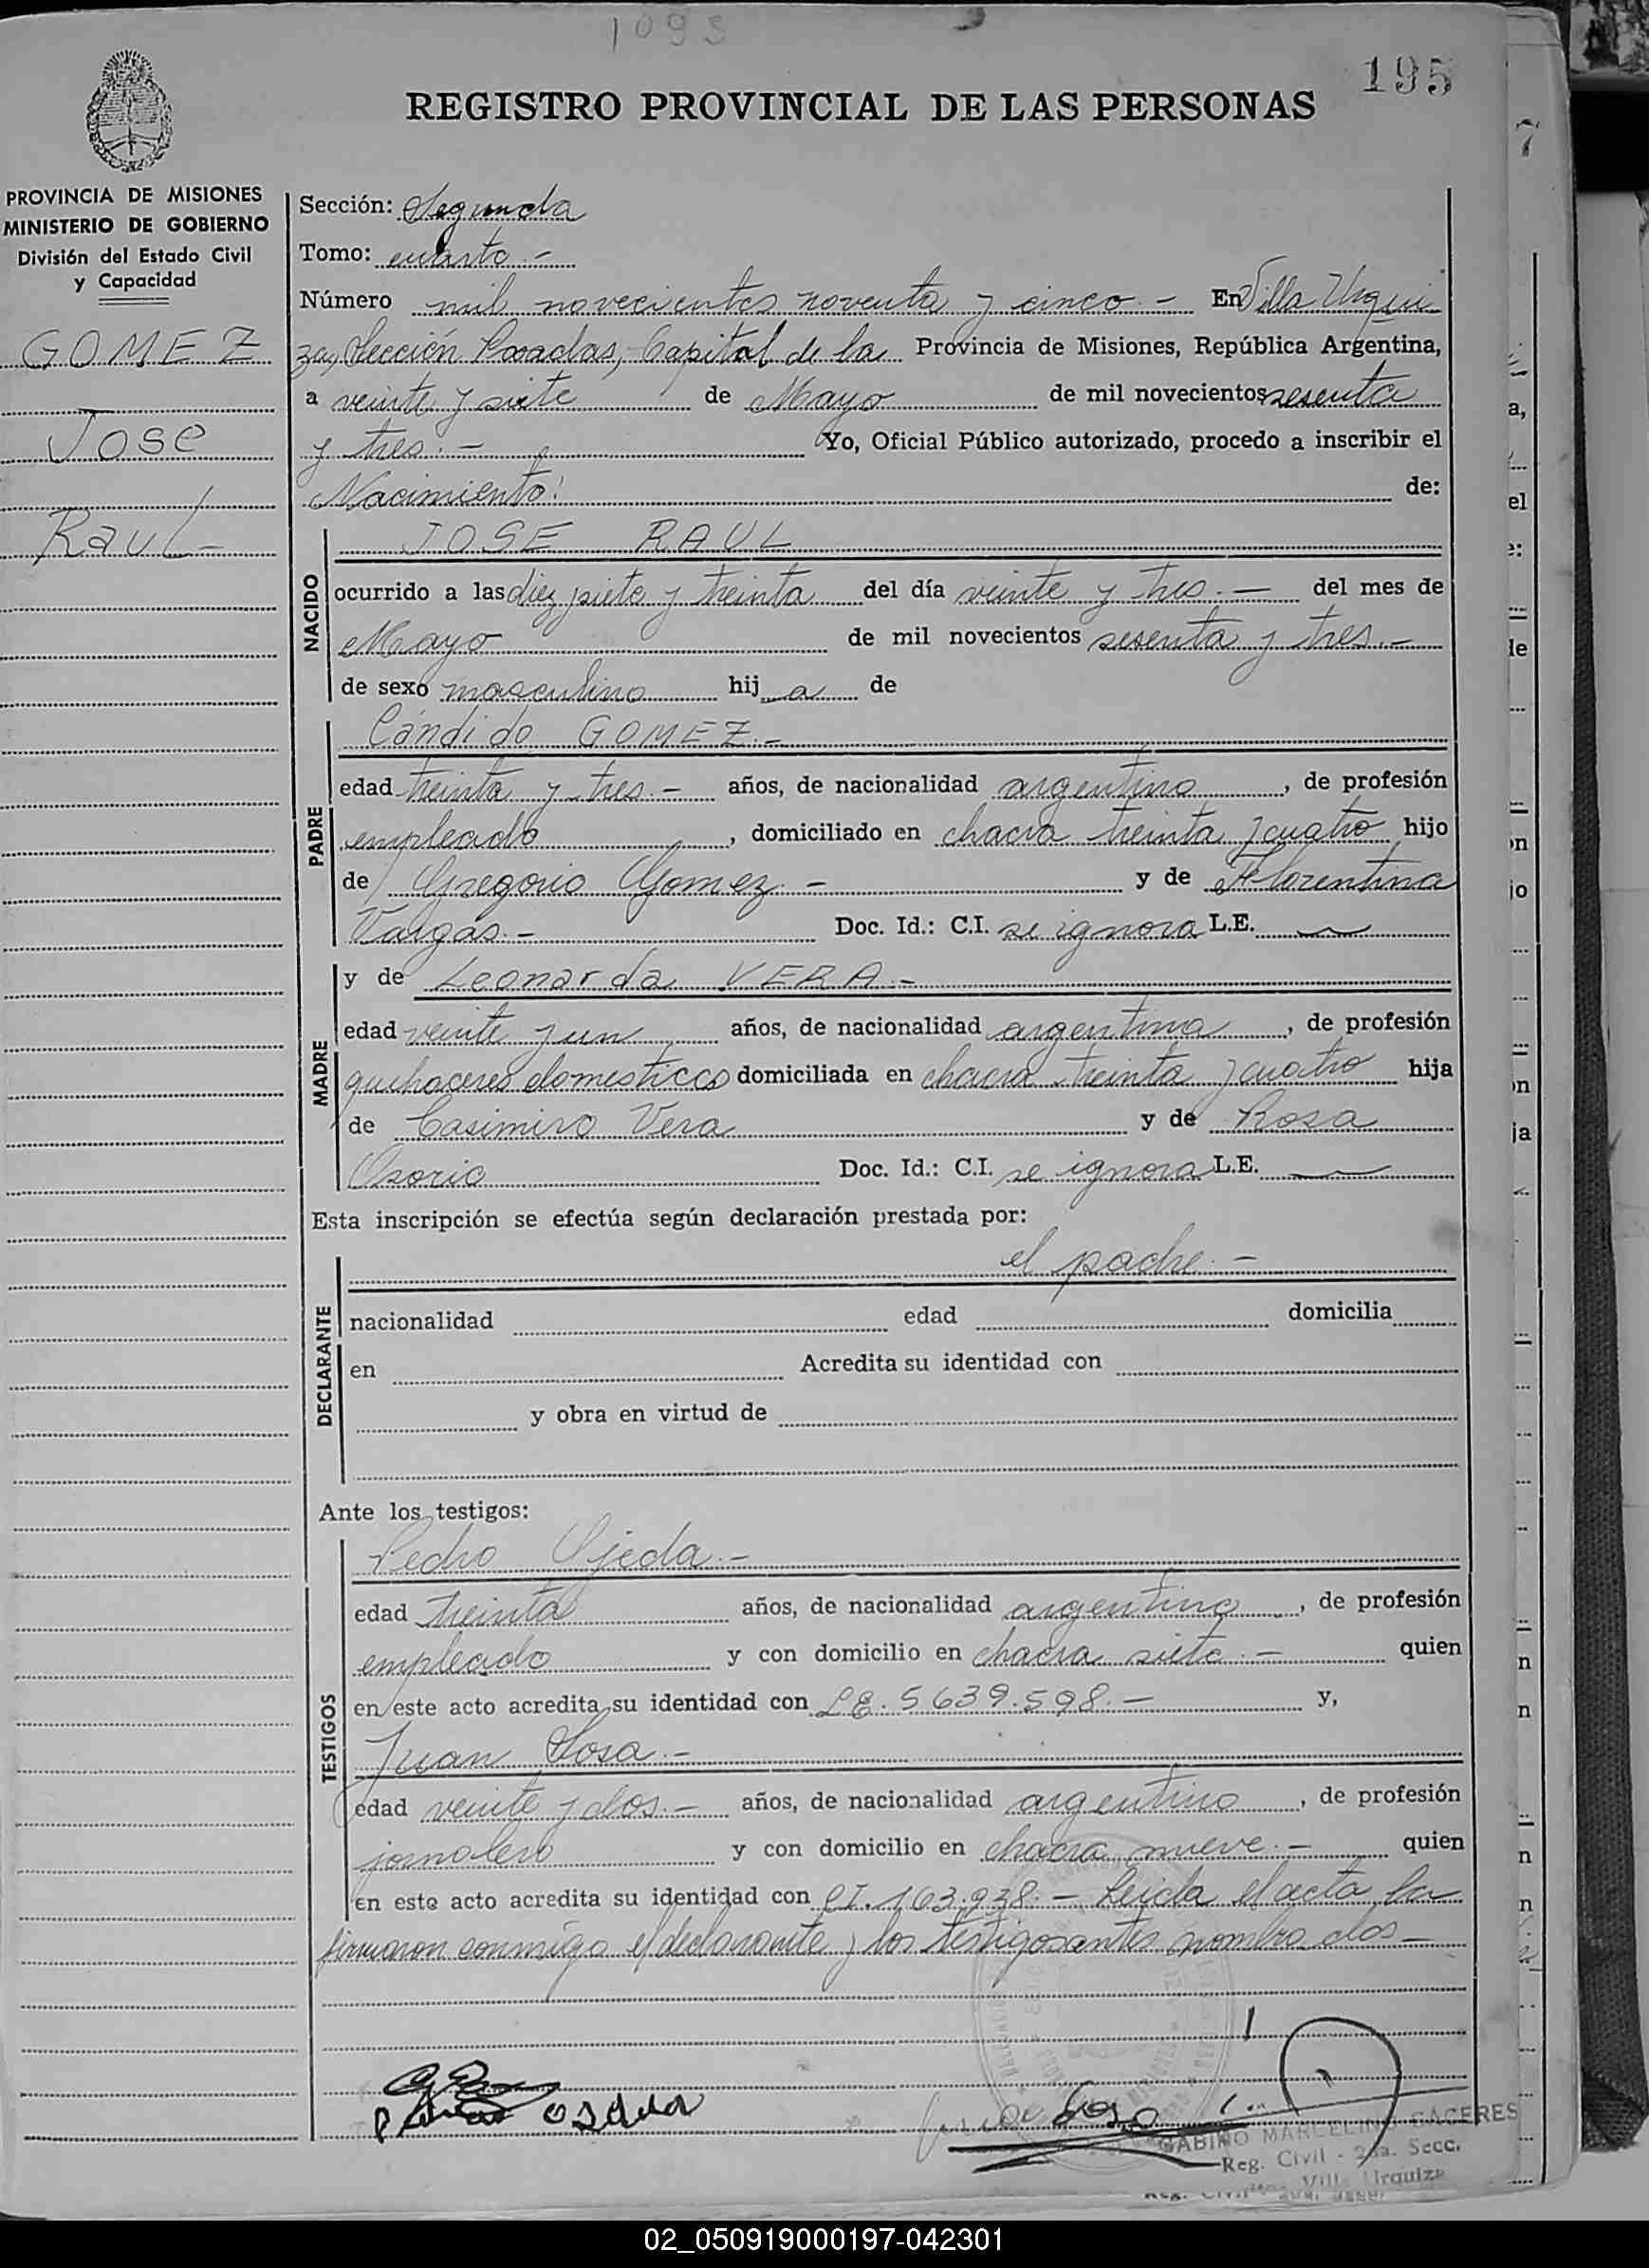 1095
195
REGISTRO PROVINCIAL DE LAS PERSONAS
PROVINCIA DE MISIONES
MINISTERIO DE GOBIERNO
División del Estado Civil
y Capacidad
GOMEZ
Jose
Raul-
Sección: Segunda
Tomo: cuarto.-
Número mil novecientos noventa y cinco.- En Villa Urqui
za, Sección Posadas, Capital de la Provincia de Misiones, República Argentina,
a veinte y siete de Mayo de mil novecientos sesenta
y tres.- Yo, Oficial Público autorizado, procedo a inscribir el
Nacimiento: de:
NACIDO
JOSE RAUL
ocurrido a las diez siete y treinta del día veinte y tres.- del mes de
Mayo de mil novecientos sesenta y tres.-
de sexo masculino hij a de
PADRE
Cándido GOMEZ.-
edad treinta y tres.- años, de nacionalidad argentino, de profesión
empleado, domiciliado en chacra treinta y cuatro hijo
de Gregorio Gomez.- y de Florentina
Vargas.- Doc. Id.: C.I. se ignora L.E.
MADRE
y de Leonarda VERA.-
edad veinte y un años, de nacionalidad argentina, de profesión
quehaceres domesticos domiciliada en chacra treinta y cuatro hija
de Casimiro Vera y de Rosa
Osorio Doc. Id.: C.I. se ignora L.E.
Esta inscripción se efectúa según declaración prestada por:
DECLARANTE
el padre.-
nacionalidad edad domicilia
en Acredita su identidad con
y obra en virtud de
Ante los testigos:
TESTIGOS
Pedro Ojeda.-
edad treinta años, de nacionalidad argentino, de profesión
empleado y con domicilio en chacra siete.- quien
en este acto acredita su identidad con LE. 5639.598.- y,
Juan Sosa.-
edad veinte y dos.- años, de nacionalidad argentino, de profesión
jornalero y con domicilio en chacra nueve.- quien
en este acto acredita su identidad con CI. 163.938.- Leida el acta la
firmaron conmigo el declarante y los testigos antes nombrados-
Sosa
GABINO MARCELINO CACERES
Reg. Civil - 2da. Secc.
Villa Urquiza
02_050919000197-042301